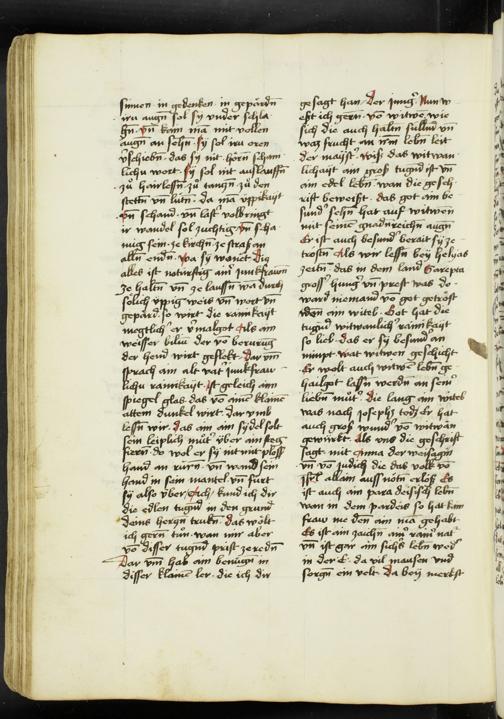 sinnen in gedenken in gepärdn̄
iru augn̄ sol sy vnder schla
gn̄ vn̄ kain ma mit vollen
augn̄ an sehn̄ Sy sol iru oren
v̓schiebn̄ das sy nit hörn scham
lichu wort Sy sol nit auslauffn̄
zů hairlessn̄ zů tanzn̄ zů den
stettn̄ vn̄ lutn̄ da ma v̓ppikayt
vn̄ schand vn̄ last volbringt
ir wandel sol zuchtig vn̄ scha
mig sein ze kirchn̄ ze straß an
alln̄ endn̄ wa sy wonet Dis
alles ist notürftig aim̄ junkfrawn̄
ze haltn̄ vn̄ ze lauffn̄ wa durch
solich v̓ppig weis vn̄ wort vn̄
gepärd so wirt die rainikayt
mogtlich er v̓malgot Als ain
weisser bilm̄ der vō berurug
der hend wirt geflekt Dar vm̄
sprach ain alt vat̓ junkfrau
lichu rainikayt ist geleich aim
spiegel glas das vō aim̄ klaine
attem dunkel wirt Dar vmb
lessn̄ wir das ain am sydel solt
sein leiplich mūt̓ v̓ber ain steg
fiern do wol er sy nit mit ploss̓
hand an rürn vn̄ wand sein
hand in sein mantel vn̄ fūrt
sy also v̓ber Sich kund ich dir
die edlen tugnd in den grund
deins hertzn trukn̄ das wölt
ich gern tun wan mir aber
vō disser tugnd prist ze redn̄
Dar vm̄ hab ain benügn in
disser klainē ler die ich dir
gesagt han Der jung̓ Nun w
est ich gern vō witwe wie
sich die auch haltn̄ sülln̄ vn̄
was frucht an irm̄ lebn̄ leit
der mayst̓ wiss das witwan
lichayt ain groß tugnd ist vn̄
ain edel lebn̄ wan die gesch
rift beweist das got ain be
sund̓ sehn̄ hat auf witwen
mit seinē gnadnreichn augn̄
Er ist auch besund̓ berait sy ze
trostn̄ Als wir lessn̄ bey helyas
zeitn̄ das in dem land Sarepta
gross̓ hung̓ vn̄ prest was do
ward niemand vō got getröst
den ain witeb Got hat die
tugnd witwanlich̓ rainikayt
so lieb das er sy besund̓ an
nimpt wat witwen geschicht
Er wolt auch witwē lebn̄ ge
hailgot lassn̄ werdn an sein̓
liebn̄ mūt̓ die lang ain witeb
was nach josephs tod Er hat
auch groß wund̓ vō witwan
gewirkt Als vns die geschrift
sagt mit Anna der weissagin
vn̄ vō judich die das volk vō
jsrl̄ allain auss nōtn erloß Es
ist auch ain para deisisch lebn̄
wan in dem pardeis so hat kain
frau me den ain ma gehabt
Es ist ain zaichn ain̓ rain̓ nat̓
vn̄ ist gar ain sichs lebn̄ wed̓
in der E da vil mausen vnd
sorgn̄ ein velt Da bey merkst